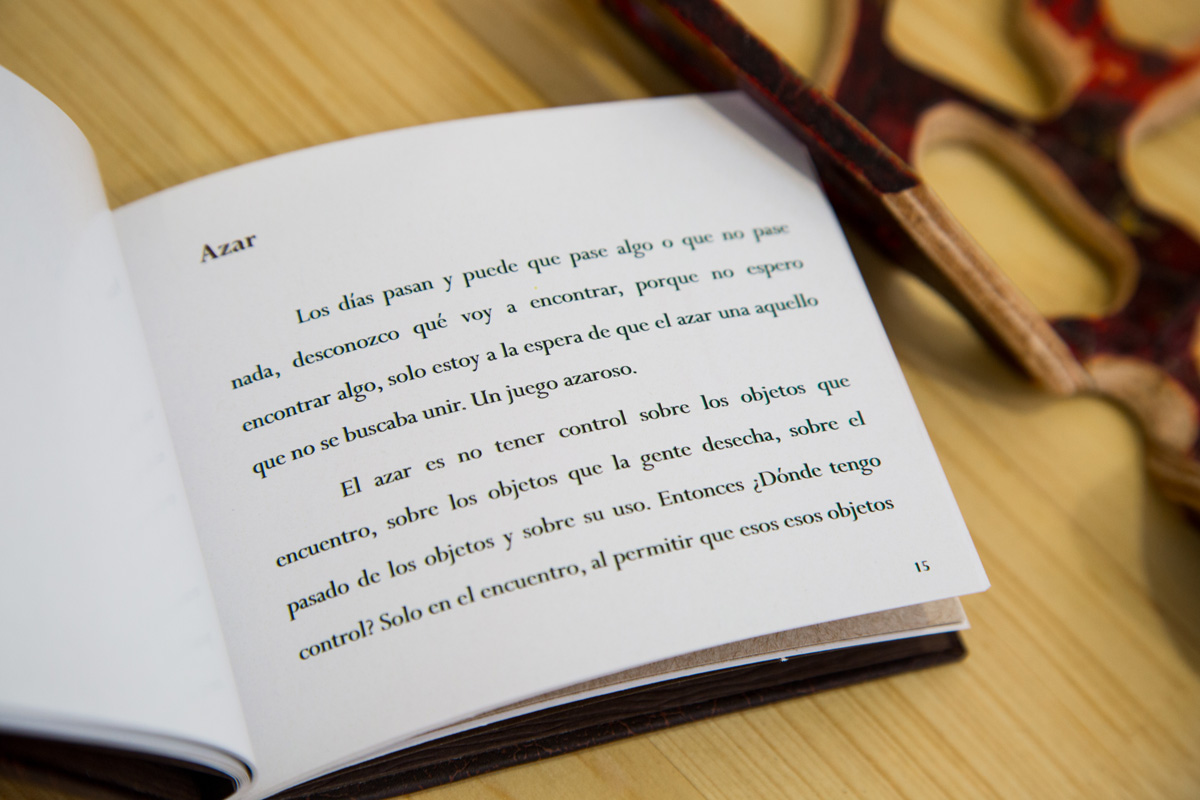 Azar
Los días pasan y puede que pase algo o que no pase
nada, desconozco qué voy a encontrar, porque no espero
encontrar algo, solo estoy a la espera de que el azar una aquello
que no se buscaba unir. Un juego azaroso.
El azar es no tener control sobre los objetos que
encuentro, sobre los objetos que la gente desecha, sobre el
pasado de los objetos y sobre su uso. Entonces ¿Dónde tengo
control? Solo en el encuentro, al permitir que esos esos objetos
15